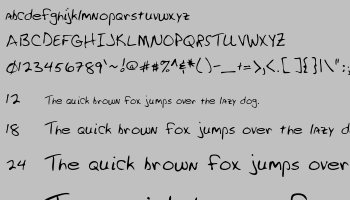 abcdefghijklmnopqrstuvwxyz
ABCDEFGHIJKLMNOPQRSTUVWXYZ
0123456789'~!@##%^&*()-_+=>,<.[]{}|\":;
12 The quick brown fox jumps over the lazy dog.
18 The quick brown fox jumps over the lazy d
24 The quick brown fox jumps over